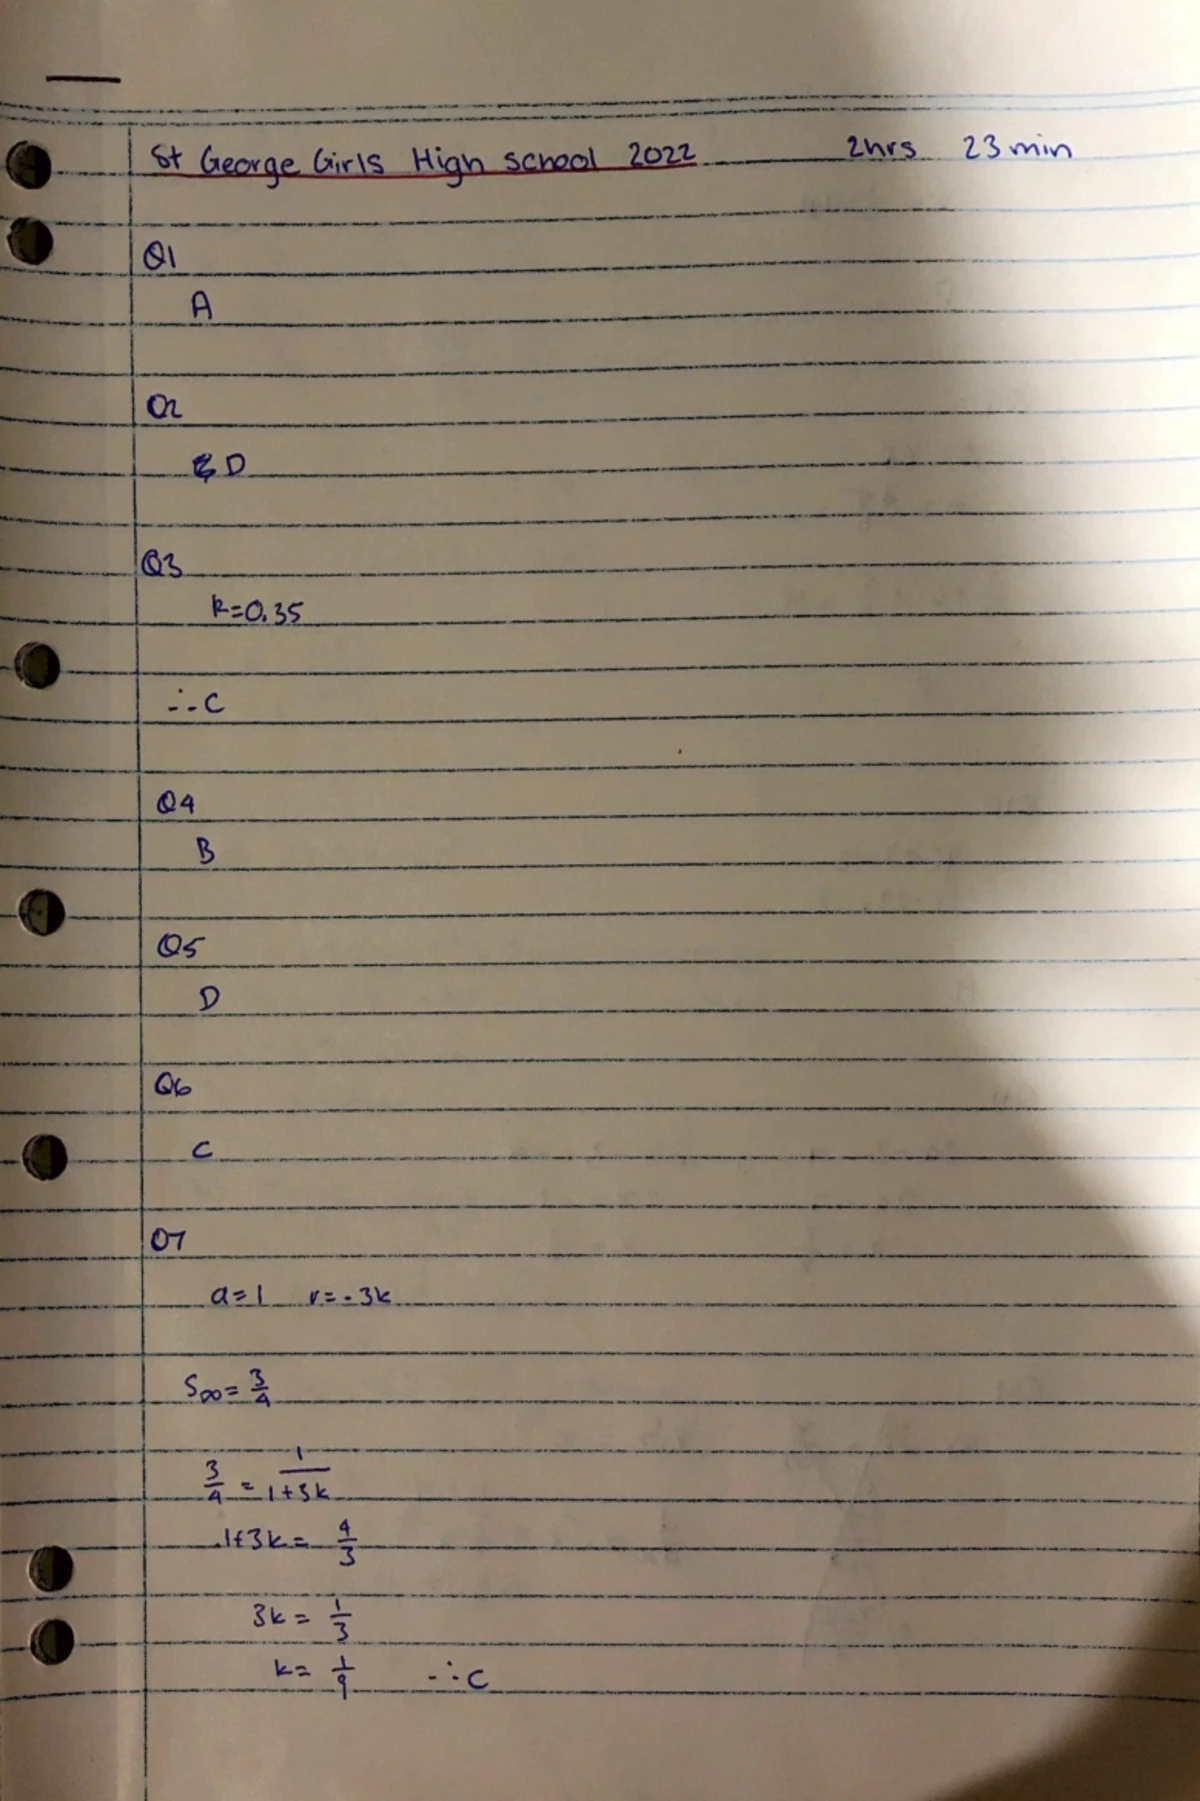 St George Girls High School 2022 2hrs 23min
Q1
A
Q2
D
Q3
k=0.35
∴C
Q4
B
Q5
D
Q6
C
Q7
a=1 r=-3k
S∞=3/4
3/4 = 1/1+3k
1+3k= 4/3
3k= 1/3
k= 1/9 ∴C